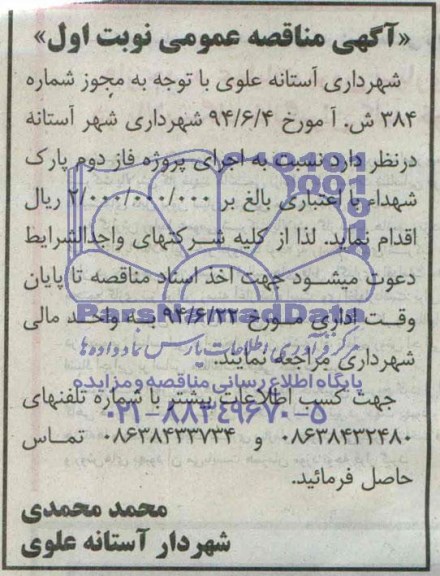 «آگهی مناقصه عمومی نوبت اول»
شهرداری آستانه علوی با توجه به مجوز شماره
۳۸۴ ش. آ مورخ ۹۴/۶/۴ شهرداری شهر آستانه
درنظر دارد نسبت به اجرای پروژه فاز دوم پارک
شهداء با اعتباری بالغ بر ۲/۰۰۰/۰۰۰/۰۰۰ ریال
اقدام نماید. لذا از کلیه شرکتهای واجدالشرایط
دعوت میشود جهت اخذ اسناد مناقصه تا پایان
وقت اداری مورخ ۹۴/۶/۲۲ به واحد مالی
شهرداری مراجعه نمایند.
جهت کسب اطلاعات بیشتر با شماره تلفنهای
۰۸۶۳۸۴۳۲۴۸۰ و ۰۸۶۳۸۴۳۳۷۳۴ تماس
حاصل فرمائید.
محمد محمدی
شهردار آستانه علوی
ParsNamadData
مرکز فرآوری اطلاعات پارس نماد داده ها
پایگاه اطلاع رسانی مناقصه و مزایده
۰۲۱-۸۸۳۴۹۶۷۰-۵